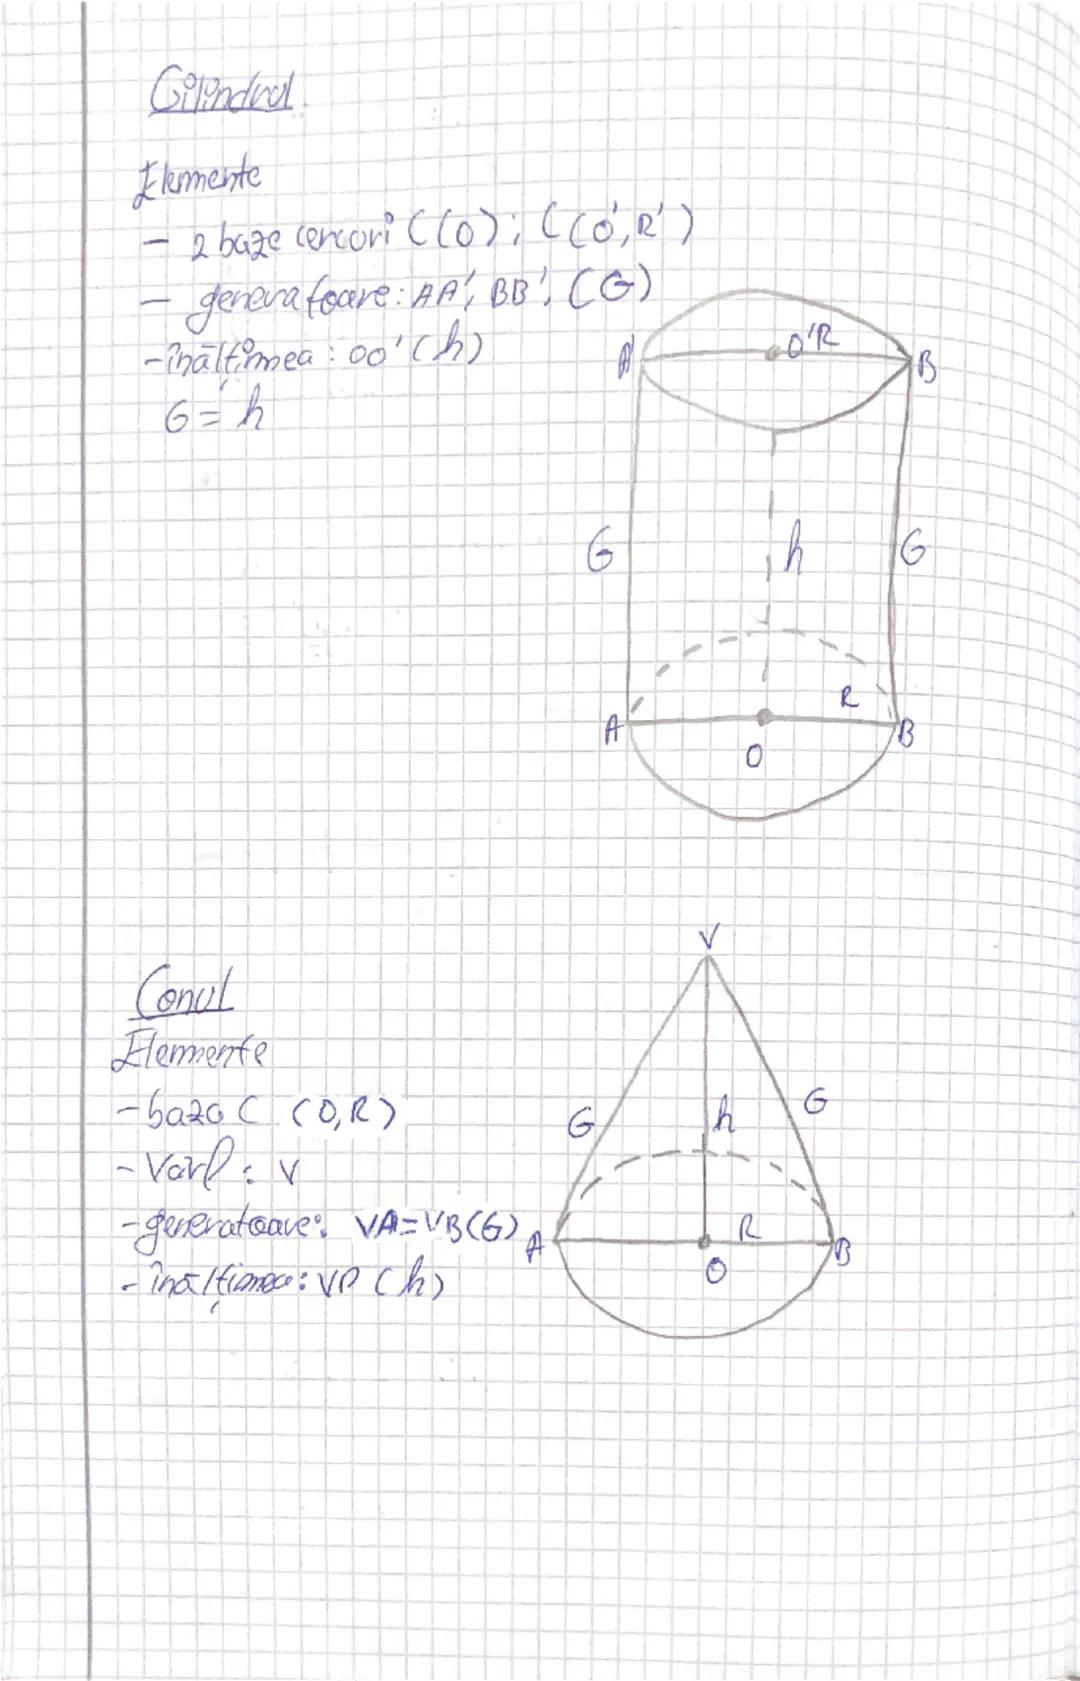 Cilindrul
Elemente
- 2 baze cercuri C(O); C(O',R')
- generatoare: AA', BB', (G)
- înălțimea: OO' (h)
G = h
A' O' R B
G h G
R
A B
O
V
Conul
Elemente
- baza C (O,R)
- Vârf: V
- generatoare: VA=VB(G)
- înălțimea: VO (h)
G h G
A R B
O